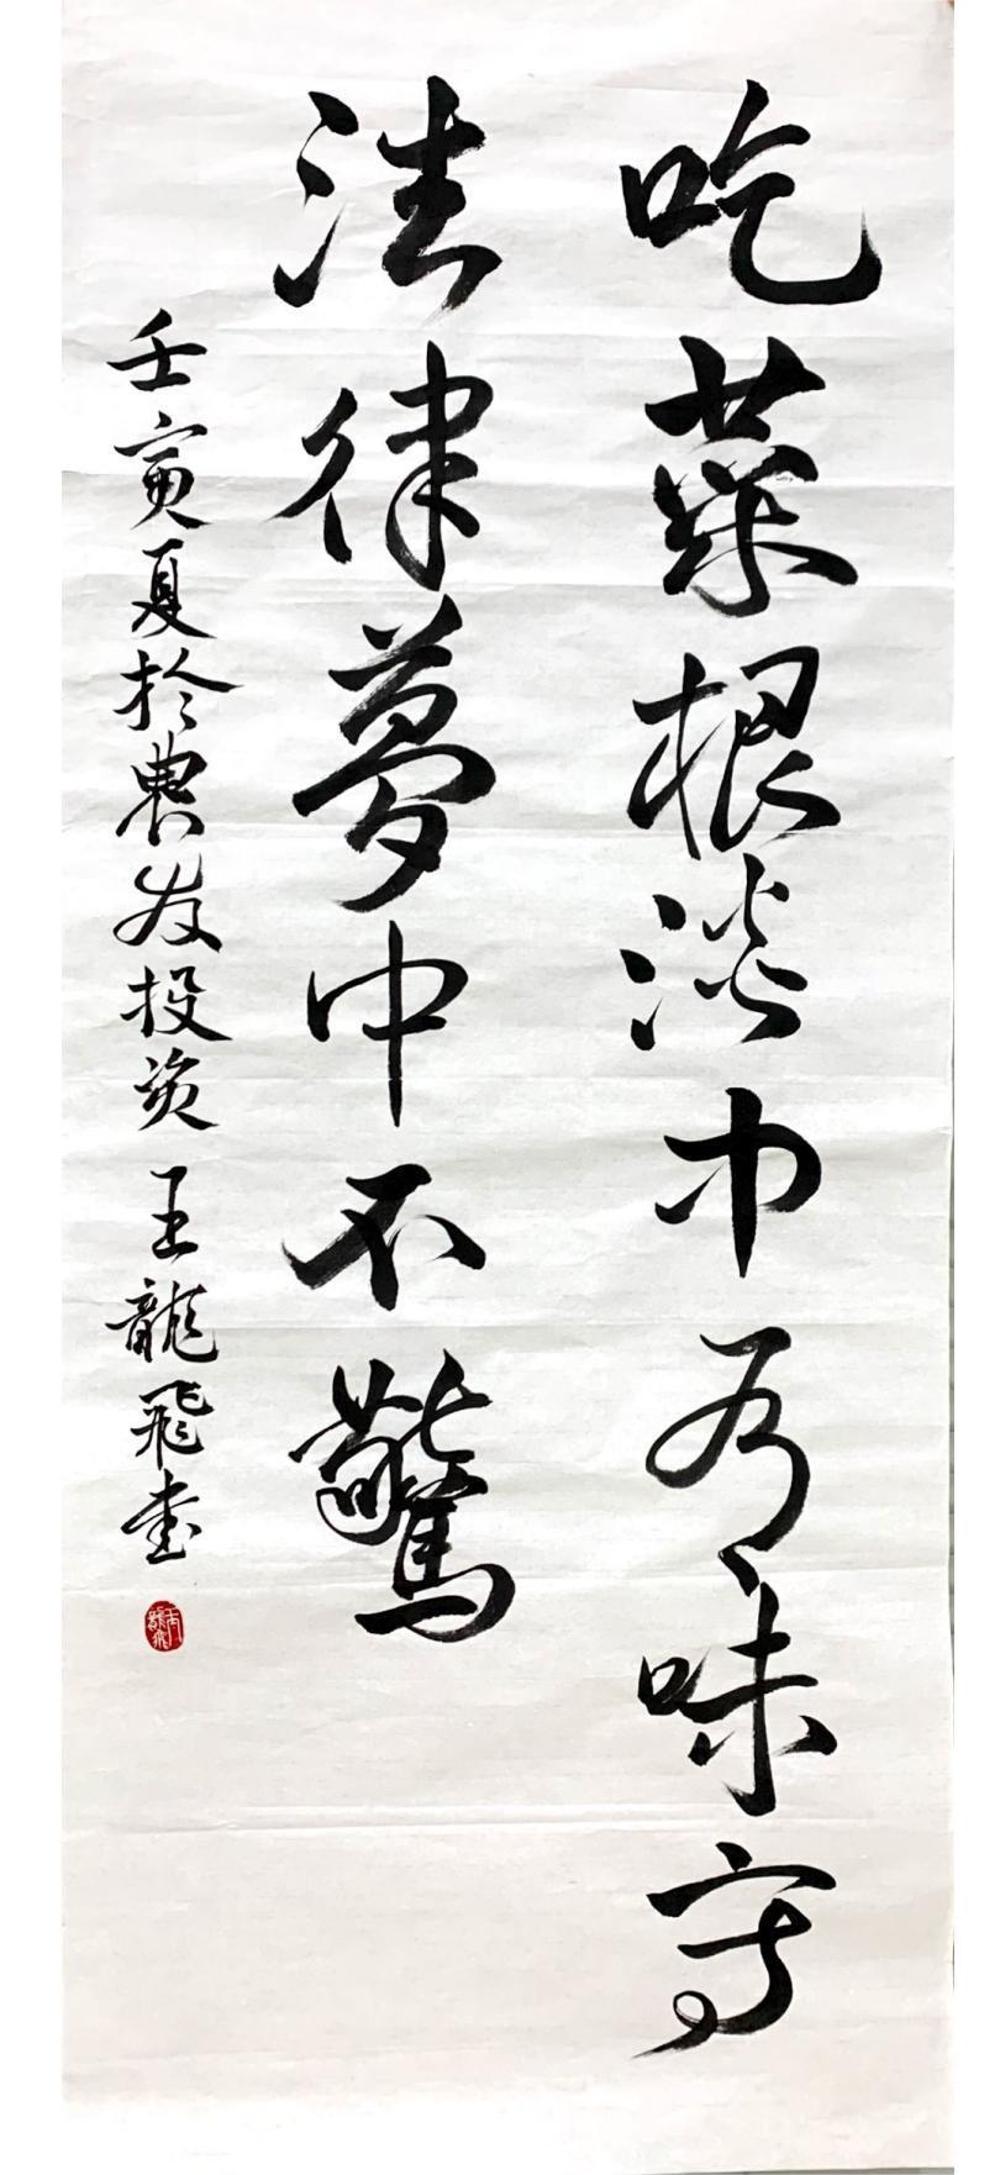 吃菜根淡中有味守
法律夢中不驚
壬寅夏於農发投资 王龍飛書